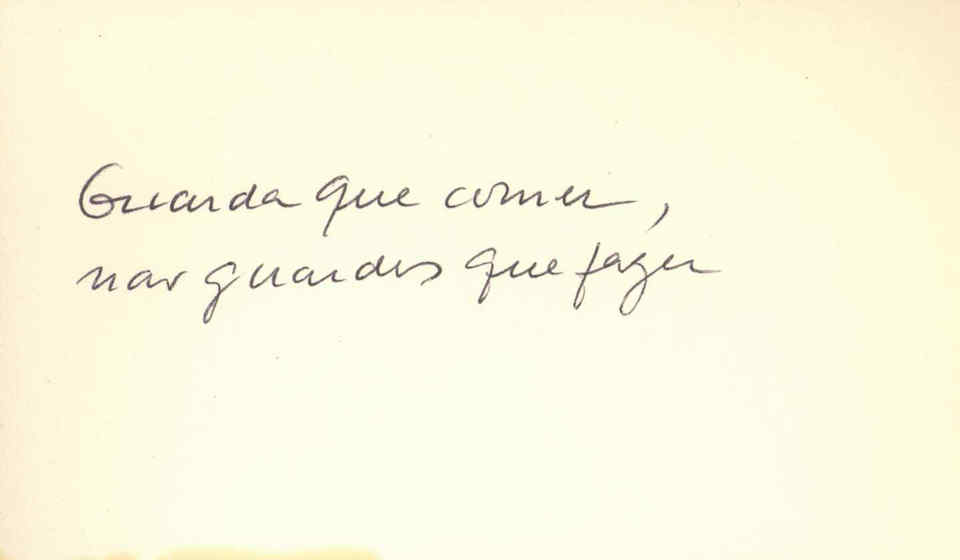 Guarda que comer,
nao guardes que fazer